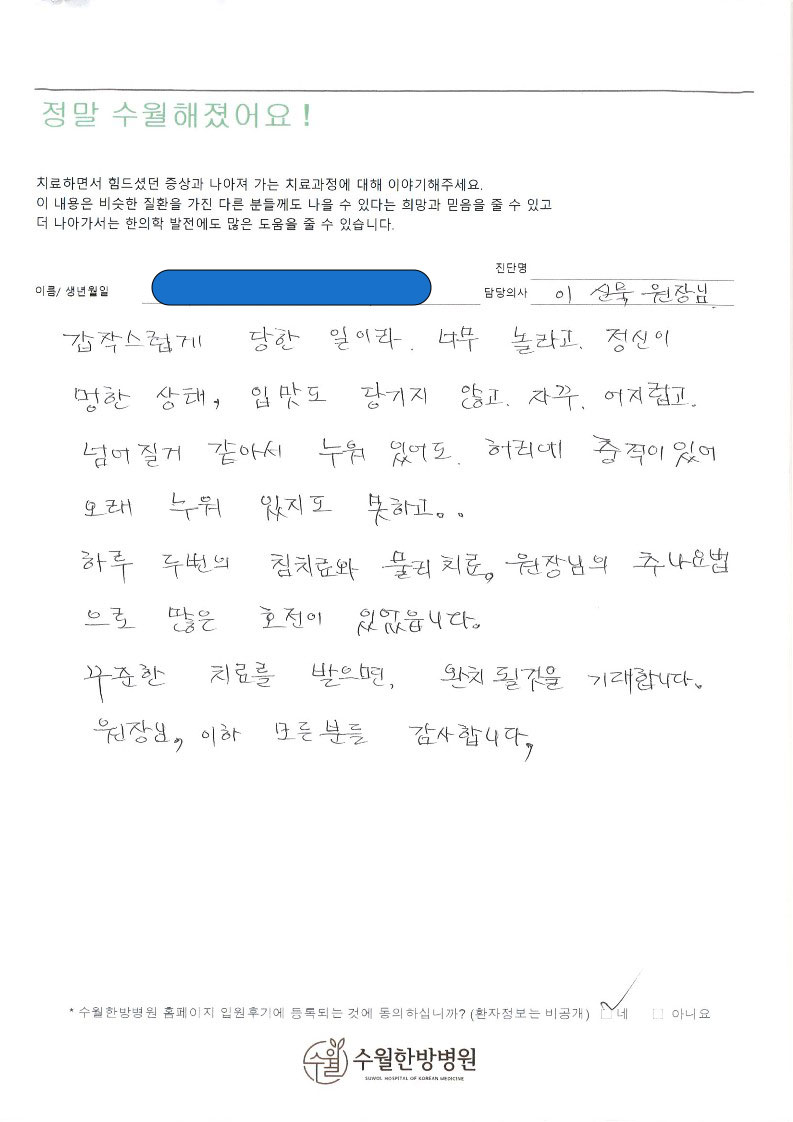 정말 수월해졌어요!
치료하면서 힘드셨던 증상과 나아져 가는 치료과정에 대해 이야기해주세요.
이 내용은 비슷한 질환을 가진 다른 분들께도 나을 수 있다는 희망과 믿음을 줄 수 있고
더 나아가서는 한의학 발전에도 많은 도움을 줄 수 있습니다.
진단명
이름/ 생년월일
담당의사 이 원장님.
갑작스럽게 당한 일이라. 너무 놀라고. 정신이
멍한 상태, 입맛도 당기지 않고. 자꾸. 어지럽고.
넘어질거 같아서 누워 있어도. 허리에 충격이 있어
오래 누워 있지도 못하고..
하루 두번의 침치료와 물리치료, 원장님의 추나요법
으로 많은 호전이 있었읍니다.
꾸준한 치료를 받으면, 완치 될것을 기대합니다.
원장님, 이하 모든분들 감사합니다,
* 수월한방병원 홈페이지 입원후기에 등록되는 것에 동의하십니까? (환자정보는 비공개) 네 아니요
수월 수월한방병원
SUWOL HOSPITAL OF KOREAN MEDICINE